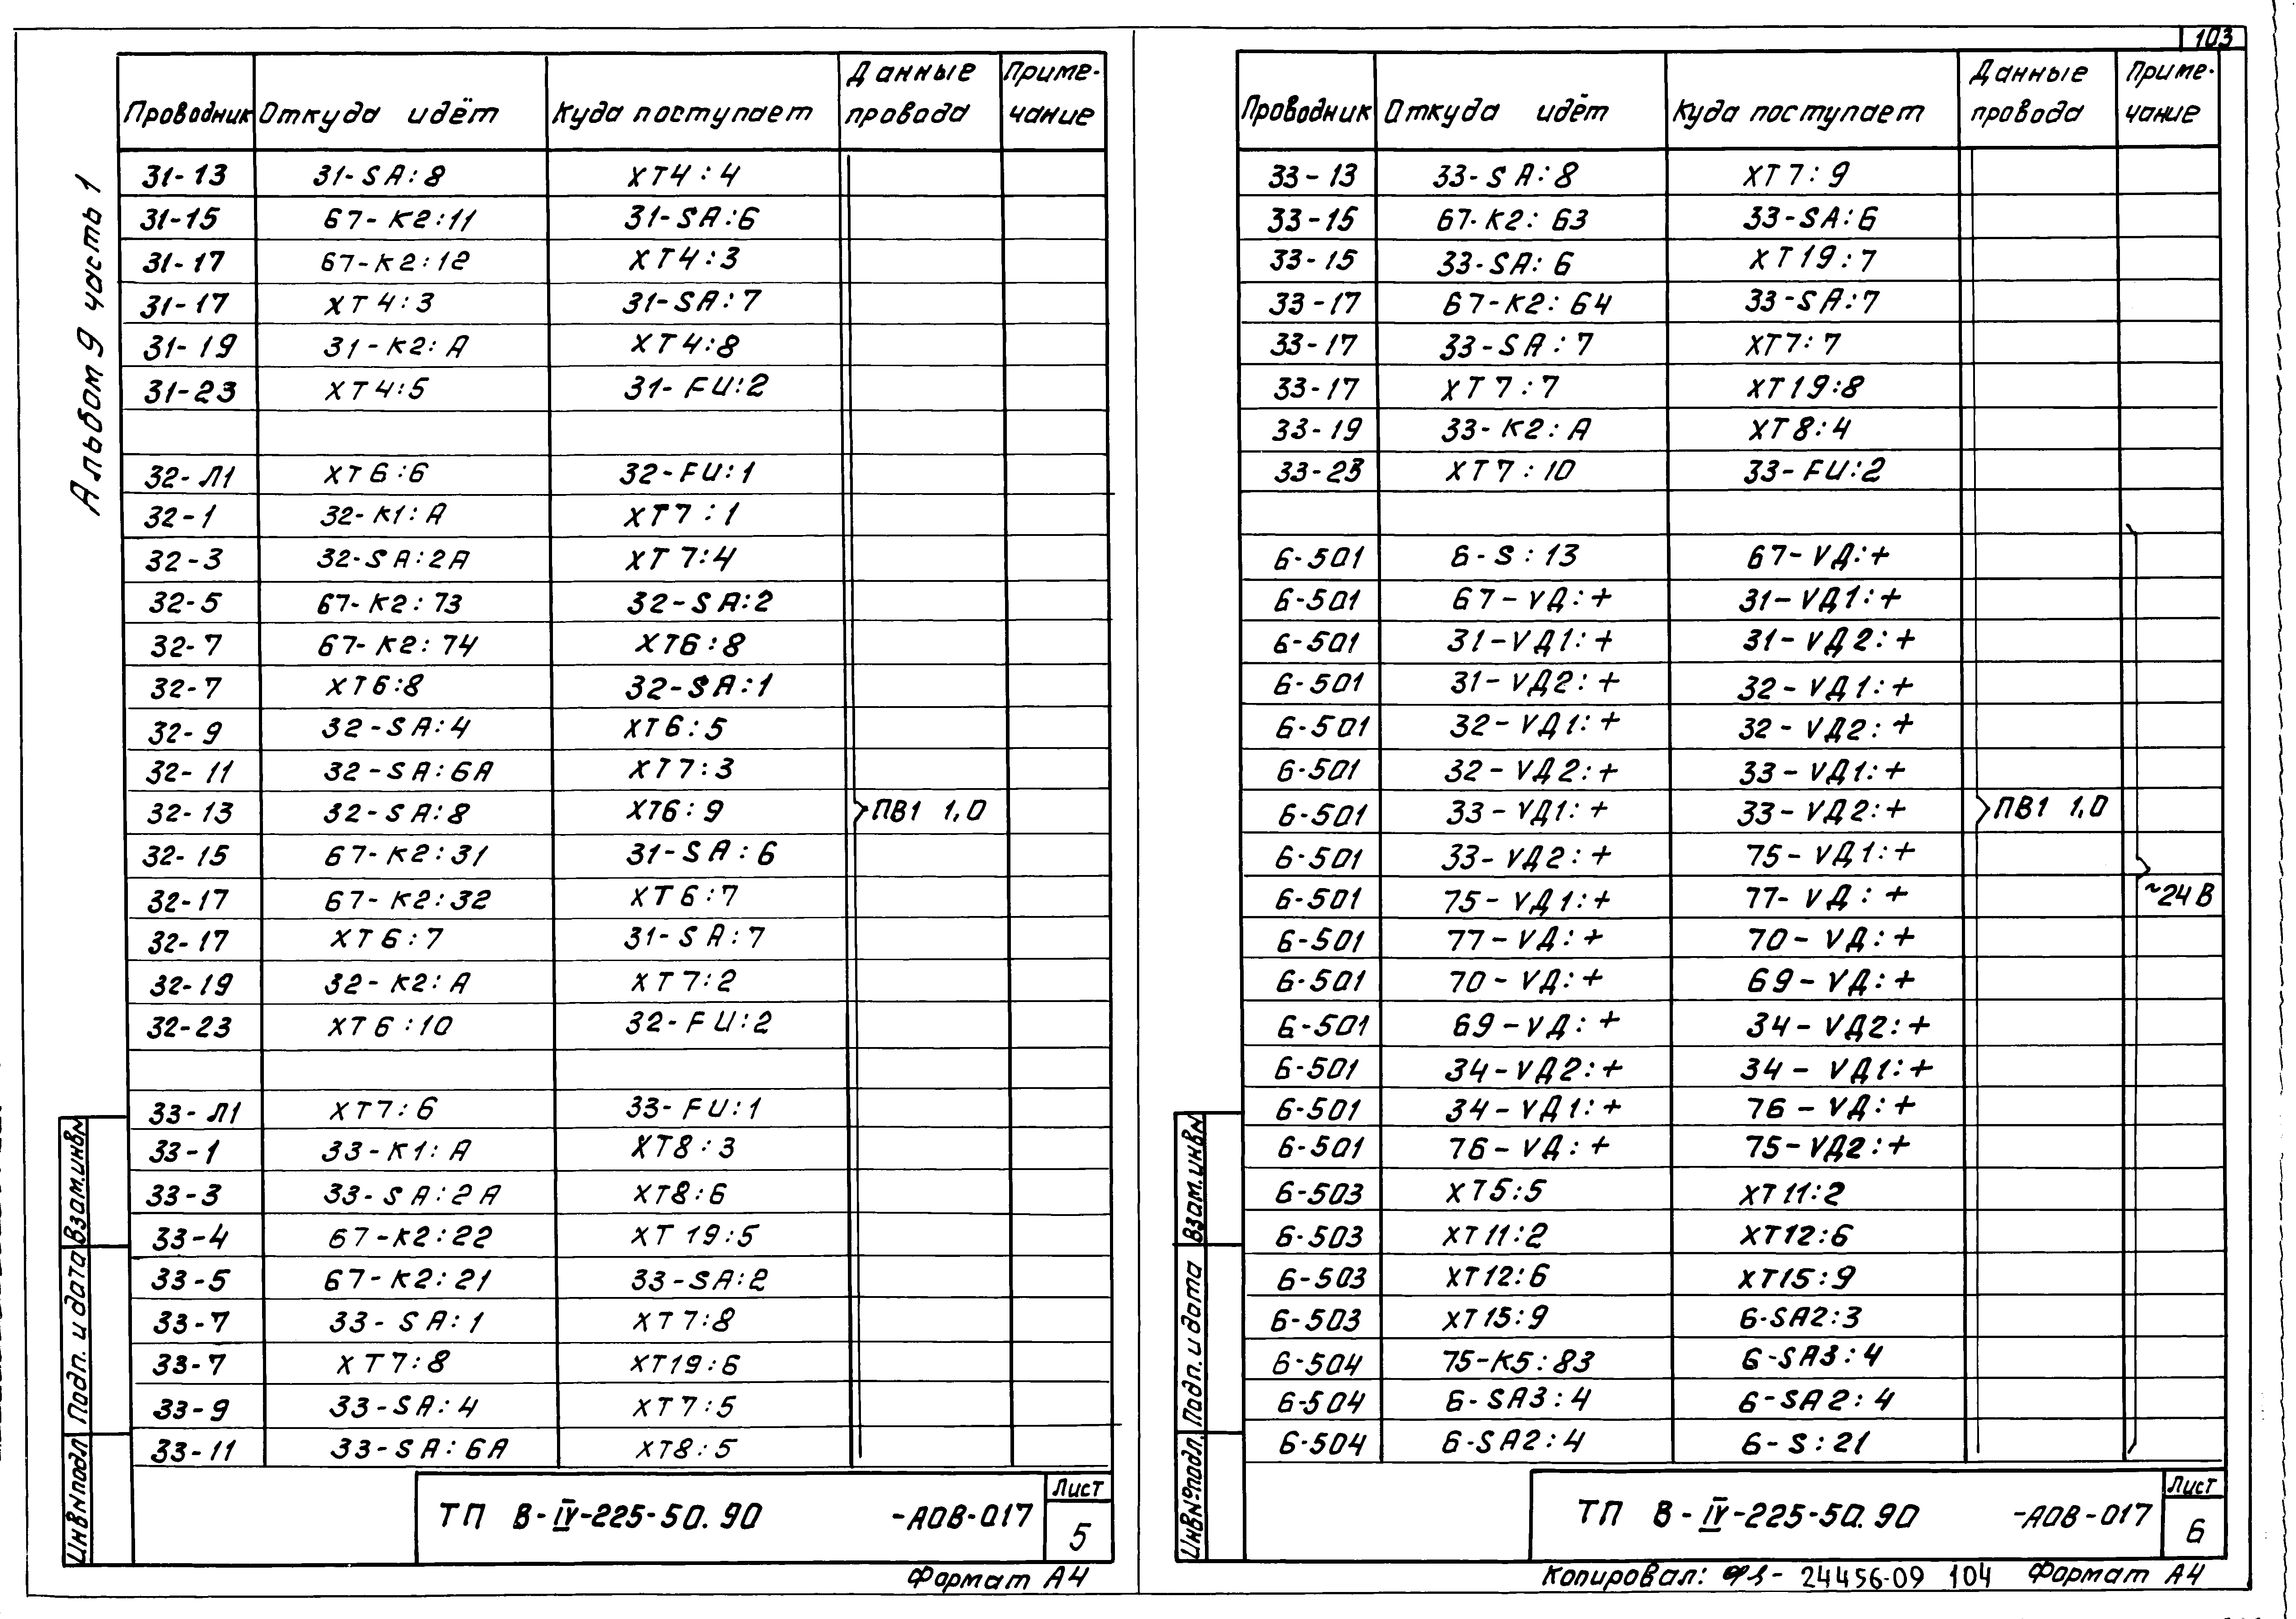 103
Альбом 9 часть 1
Проводник Откуда идёт Куда поступает Данные провода Приме-чание
31-13 31-SA:8 XT4:4
31-15 67-K2:11 31-SA:6
31-17 67-K2:12 XT4:3
31-17 XT4:3 31-SA:7
31-19 31-K2:A XT4:8
31-23 XT4:5 31-FU:2
32-Л1 XT6:6 32-FU:1
32-1 32-K1:A XT7:1
32-3 32-SA:2A XT7:4
32-5 67-K2:73 32-SA:2
32-7 67-K2:74 XT6:8
32-7 XT6:8 32-SA:1
32-9 32-SA:4 XT6:5
32-11 32-SA:6A XT7:3
32-13 32-SA:8 XT6:9 ПВ1 1,0
32-15 67-K2:31 31-SA:6
32-17 67-K2:32 XT6:7
32-17 XT6:7 31-SA:7
32-19 32-K2:A XT7:2
32-23 XT6:10 32-FU:2
33-Л1 XT7:6 33-FU:1
33-1 33-K1:A XT8:3
33-3 33-SA:2A XT8:6
33-4 67-K2:22 XT19:5
33-5 67-K2:21 33-SA:2
33-7 33-SA:1 XT7:8
33-7 XT7:8 XT19:6
33-9 33-SA:4 XT7:5
33-11 33-SA:6A XT8:5
Взам.инв№
Подп. и дата
Инв№подл
ТП В-IV-225-50.90 -АОВ-017
Лист
5
Формат А4
Проводник Откуда идёт Куда поступает Данные провода Приме-чание
33-13 33-SA:8 XT7:9
33-15 67-K2:63 33-SA:6
33-15 33-SA:6 XT19:7
33-17 67-K2:64 33-SA:7
33-17 33-SA:7 XT7:7
33-17 XT7:7 XT19:8
33-19 33-K2:A XT8:4
33-23 XT7:10 33-FU:2
6-501 6-S:13 67-VД:+
6-501 67-VД:+ 31-VД1:+
6-501 31-VД1:+ 31-VД2:+
6-501 31-VД2:+ 32-VД1:+
6-501 32-VД1:+ 32-VД2:+
6-501 32-VД2:+ 33-VД1:+
6-501 33-VД1:+ 33-VД2:+ ПВ1 1,0
6-501 33-VД2:+ 75-VД1:+
6-501 75-VД1:+ 77-VД:+ ~24В
6-501 77-VД:+ 70-VД:+
6-501 70-VД:+ 69-VД:+
6-501 69-VД:+ 34-VД2:+
6-501 34-VД2:+ 34-VД1:+
6-501 34-VД1:+ 76-VД:+
6-501 76-VД:+ 75-VД2:+
6-503 XT5:5 XT11:2
6-503 XT11:2 XT12:6
6-503 XT12:6 XT15:9
6-503 XT15:9 6-SA2:3
6-504 75-K5:83 6-SA3:4
6-504 6-SA3:4 6-SA2:4
6-504 6-SA2:4 6-S:21
Взам.инв№
Подп. и дата
Инв№подл.
ТП В-IV-225-50.90 -АОВ-017
Лист
6
Копировал: 24456-09 104 Формат А4